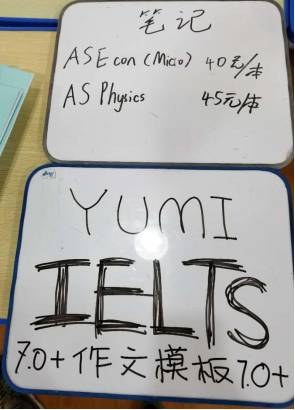 笔记
AS Econ (Micro) 40元/本
AS Physics 45元/本
YUMI
IELTS
7.0+作文模板7.0+